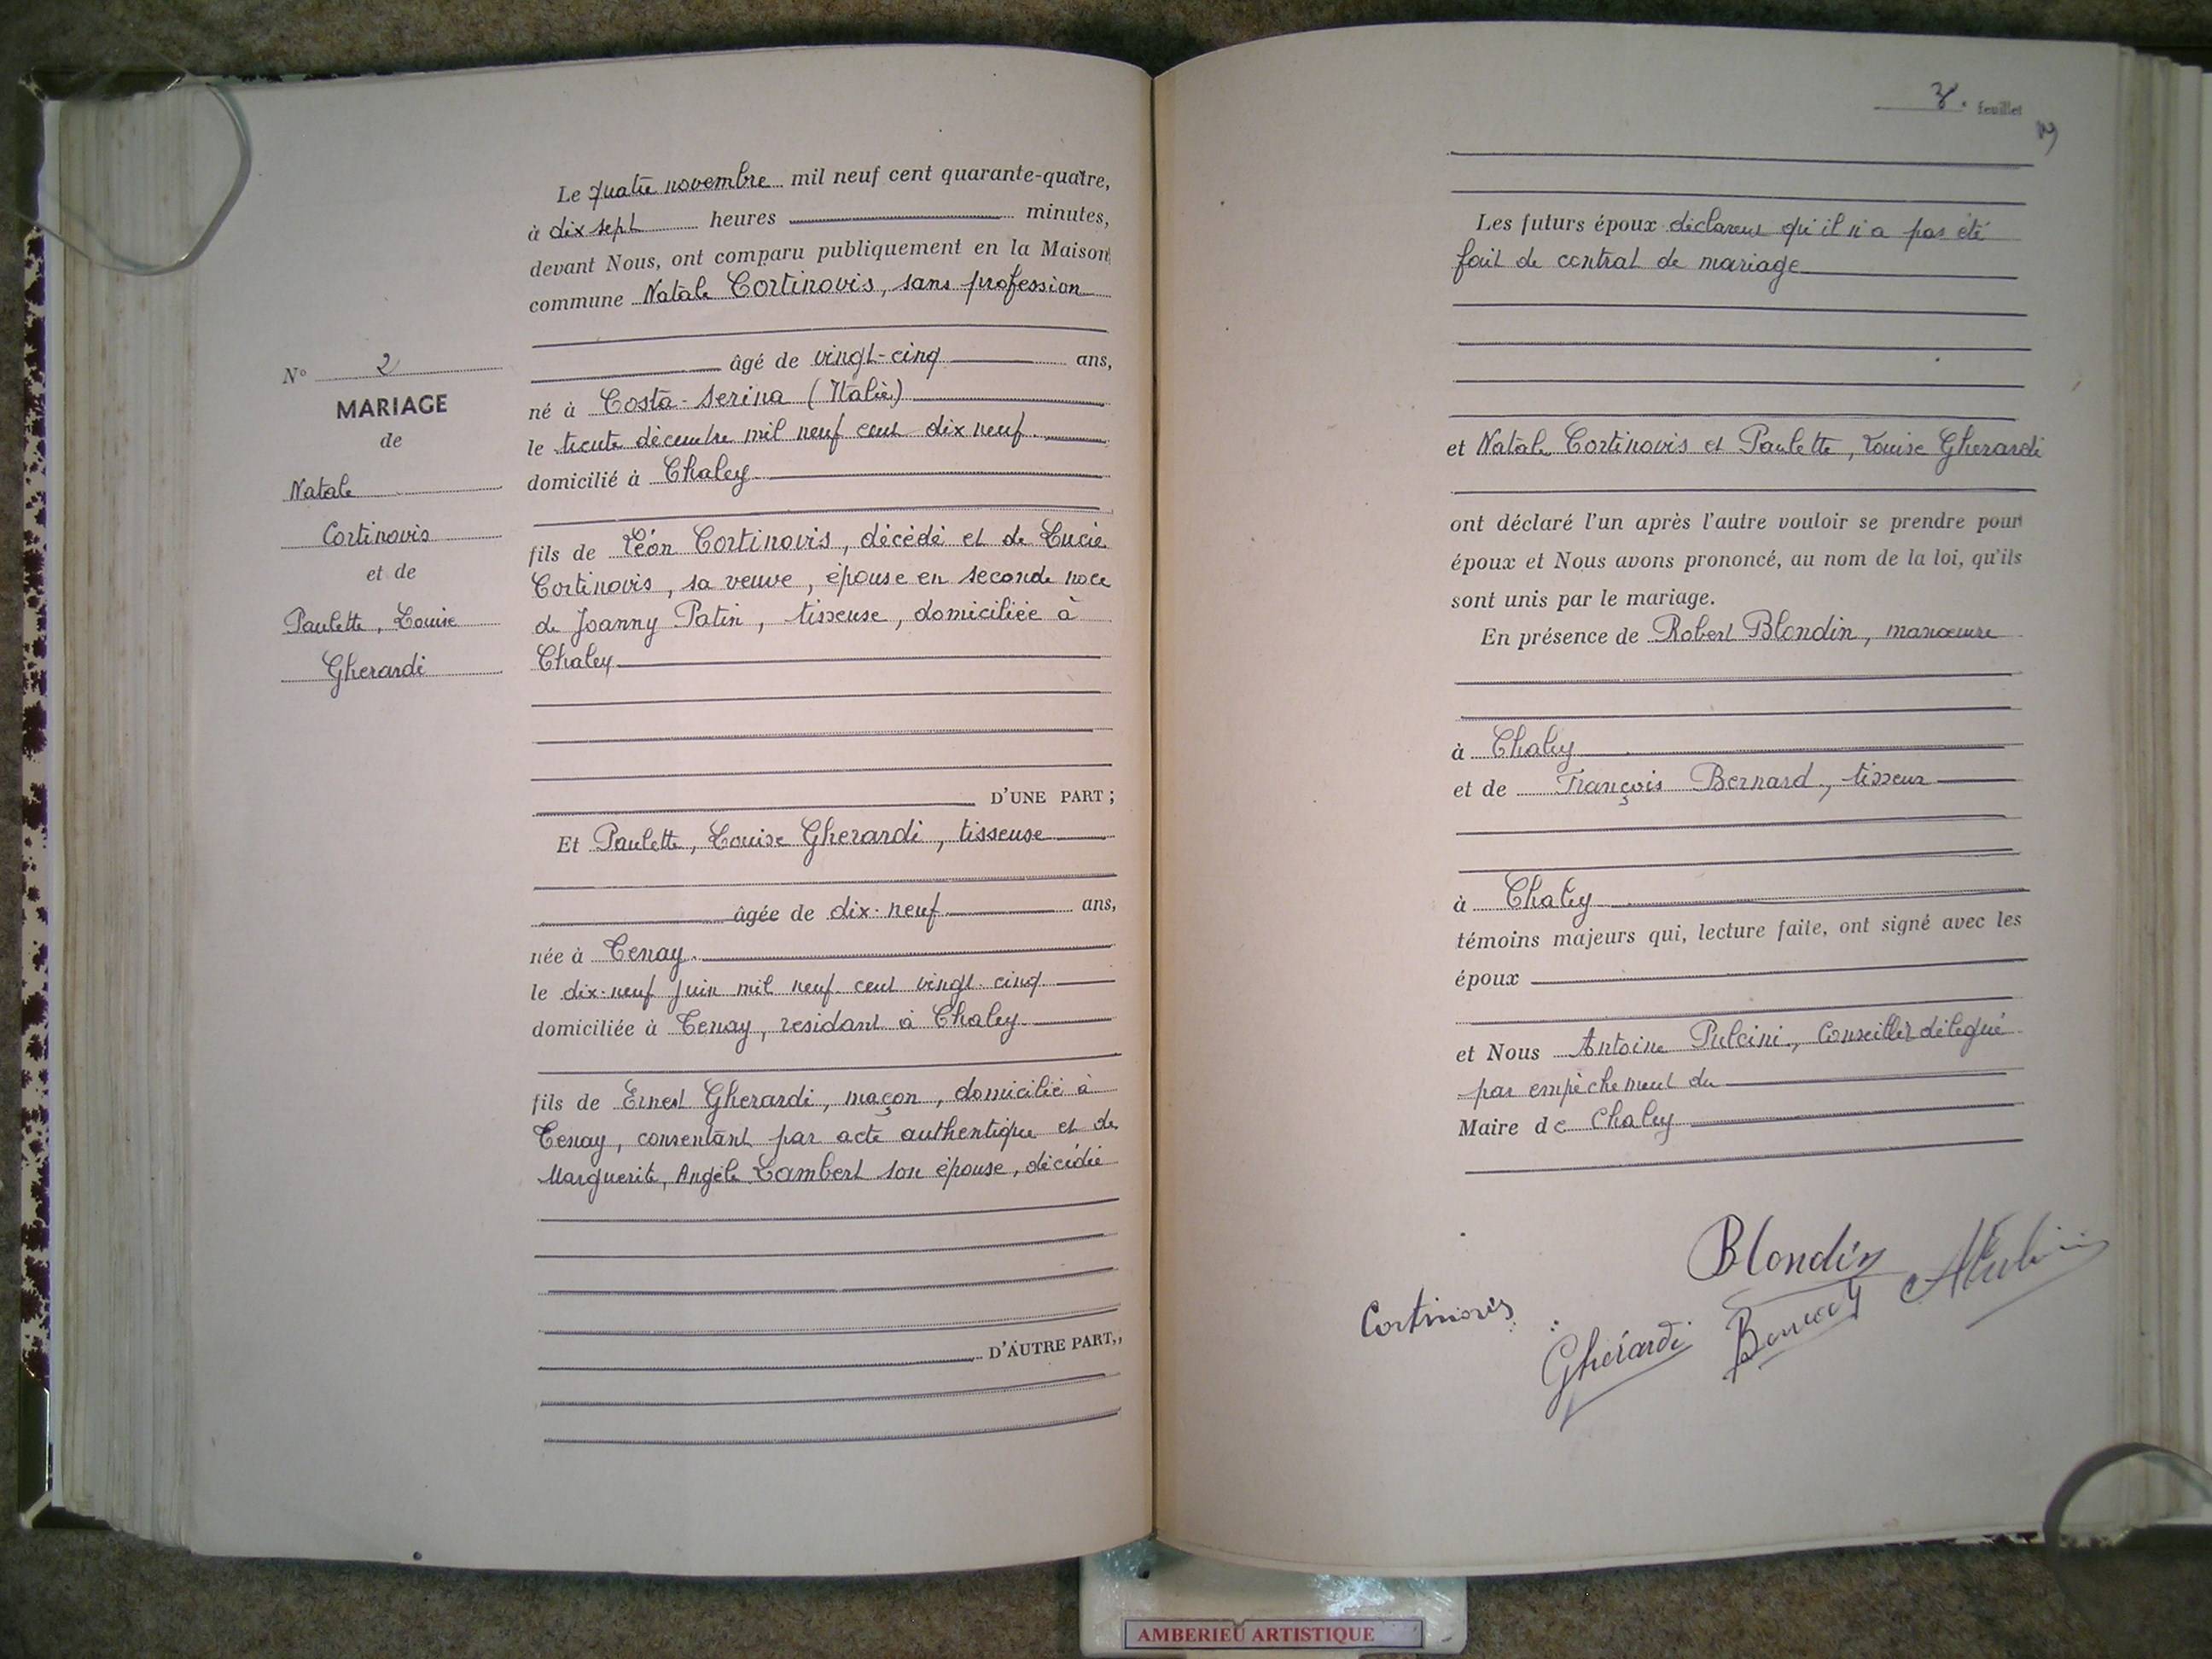 Le quatre novembre mil neuf cent quarante-quatre,
à dix sept heures minutes,
devant Nous, ont comparu publiquement en la Maison
commune Natale Cortinovis, sans profession
âgé de vingt-cinq ans,
né à Costa-Serina (Italie)
le trente décembre mil neuf cent dix neuf
domicilié à Chaley
fils de Léon Cortinovis, décédé et de Lucie
Cortinovis, sa veuve, épouse en seconde noce
de Joanny Patin, tisseuse, domiciliée à
Chaley
D'UNE PART ;
Et Paulette, Louise Gherardi, tisseuse
âgée de dix-neuf ans,
née à Tenay
le dix-neuf juin mil neuf cent vingt-cinq
domiciliée à Tenay, résidant à Chaley
fils de Ernest Gherardi, maçon, domicilié à
Tenay, consentant par acte authentique et de
Marguerite, Angèle Lambert son épouse, décédée
D'AUTRE PART,
N° 2
MARIAGE
de
Natale
Cortinovis
et de
Paulette, Louise
Gherardi
feuillet
Les futurs époux déclarent qu'il n'a pas été
fait de contrat de mariage
et Natale Cortinovis et Paulette, Louise Gherardi
ont déclaré l'un après l'autre vouloir se prendre pour
époux et Nous avons prononcé, au nom de la loi, qu'ils
sont unis par le mariage.
En présence de Robert Blondin, manœuvre
à Chaley
et de François Bernard, tisseur
à Chaley
témoins majeurs qui, lecture faite, ont signé avec les
époux
et Nous Antoine Pulcini, Conseiller délégué
par empêchement du
Maire de Chaley
Blondin
Cortinovis
Gherardi
AMBERIEU ARTISTIQUE